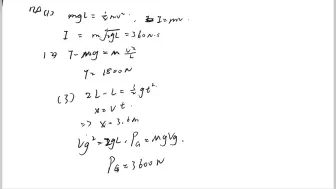 (1) mgL = ½mv², I = mv
I = m√2gL = 360N·s
(2) T - mg = m v²/L
T = 1800N
(3) 2L - L = ½gt²
x = vt
=> x = 3.6m
Vg² = 2gL, P_G = mgVg.
P_G = 3600W